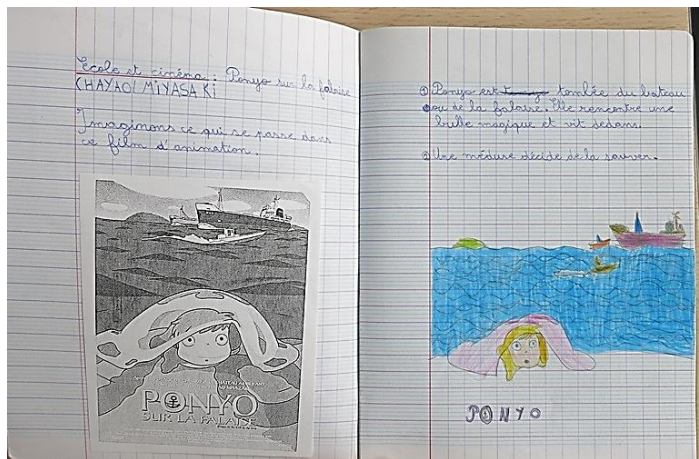 Ecole et cinéma : Ponyo sur la falaise
CHAYAO MIYASAKI
Imaginons ce qui se passe dans
ce film d'animation.
PONYO
SUR LA FALAISE
① Ponyo est tombée du bateau
ou de la falaise. Elle rencontre une
bulle magique et vit dedans.
② Une méduse décide de la sauver.
PONYO